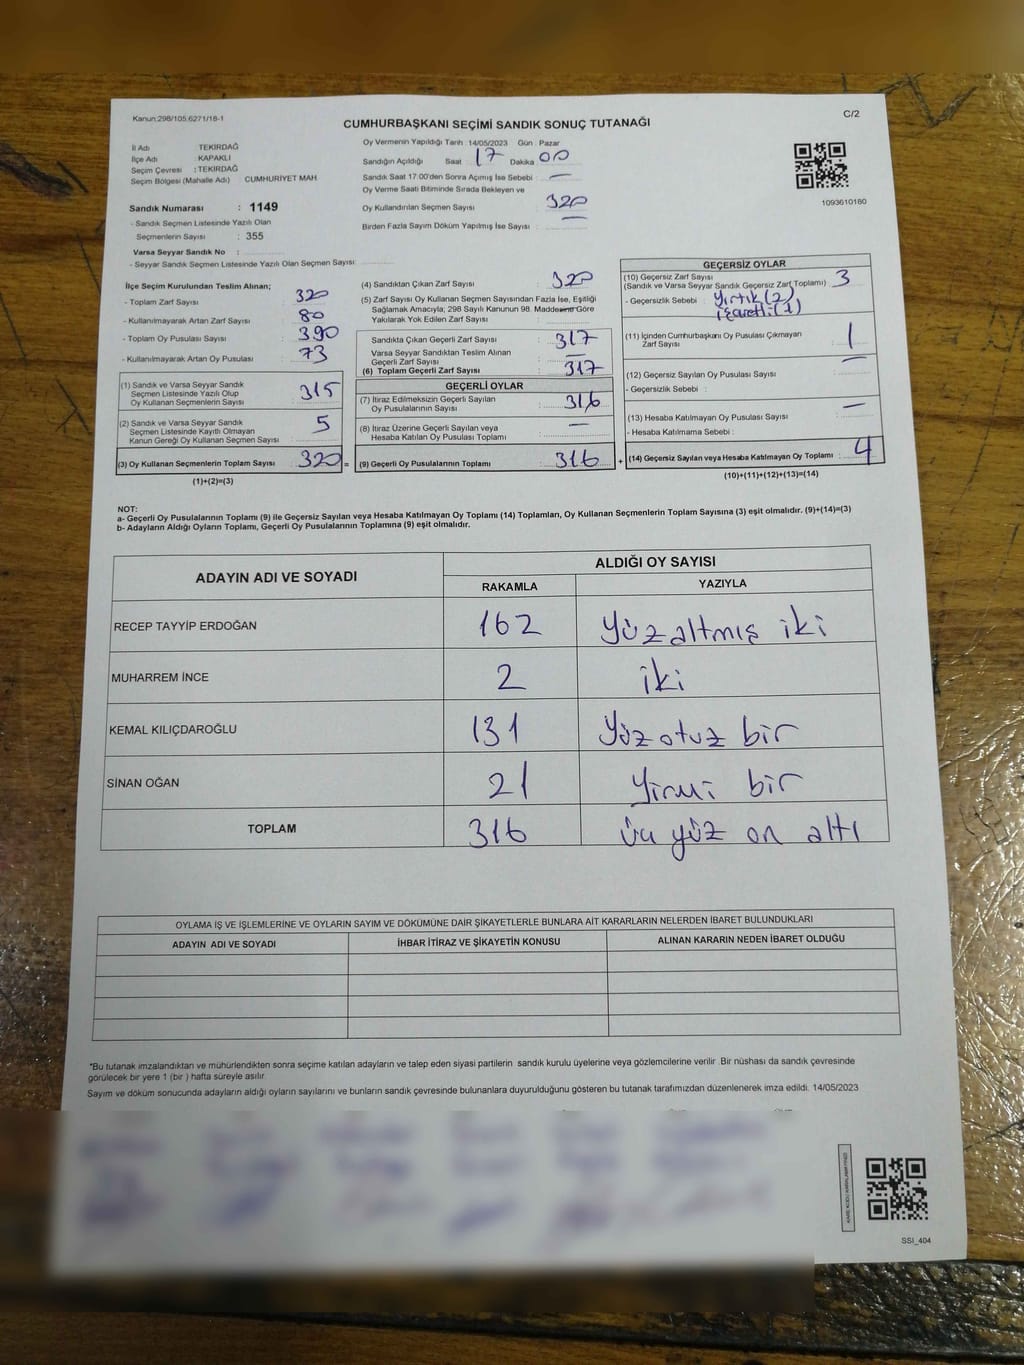 Kanun:298/105,6271/18-1
C/2
CUMHURBAŞKANI SEÇİMİ SANDIK SONUÇ TUTANAĞI
İl Adı : TEKİRDAĞ
İlçe Adı : KAPAKLI
Seçim Çevresi : TEKİRDAĞ
Seçim Bölgesi (Mahalle Adı) CUMHURİYET MAH.
Sandık Numarası : 1149
- Sandık Seçmen Listesinde Yazılı Olan
Seçmenlerin Sayısı : 355
Varsa Seyyar Sandık No :
- Seyyar Sandık Seçmen Listesinde Yazılı Olan Seçmen Sayısı:
Oy Vermenin Yapıldığı Tarih :14/05/2023 Gün : Pazar
Sandığın Açıldığı Saat 17 Dakika 00
Sandık Saat 17:00'den Sonra Açımış İse Sebebi : —
Oy Verme Saati Bitiminde Sırada Bekleyen ve
Oy Kullandırılan Seçmen Sayısı : 320
Birden Fazla Sayım Döküm Yapılmış İse Sayısı : —
1093610180
İlçe Seçim Kurulundan Teslim Alınan;
- Toplam Zarf Sayısı : 320
- Kullanılmayarak Artan Zarf Sayısı : 80
- Toplam Oy Pusulası Sayısı : 390
- Kullanılmayarak Artan Oy Pusulası : 73
(1) Sandık ve Varsa Seyyar Sandık
Seçmen Listesinde Yazılı Olup
Oy Kullanan Seçmenlerin Sayısı : 315
(2) Sandık ve Varsa Seyyar Sandık
Seçmen Listesinde Kayıtlı Olmayan
Kanun Gereği Oy Kullanan Seçmen Sayısı : 5
(3) Oy Kullanan Seçmenlerin Toplam Sayısı : 320 =
(1)+(2)=(3)
(4) Sandıktan Çıkan Zarf Sayısı : 320
(5) Zarf Sayısı Oy Kullanan Seçmen Sayısından Fazla İse, Eşitliği
Sağlamak Amacıyla; 298 Sayılı Kanunun 98. Maddesine Göre
Yakılarak Yok Edilen Zarf Sayısı : —
Sandıkta Çıkan Geçerli Zarf Sayısı : 317
Varsa Seyyar Sandıktan Teslim Alınan
Geçerli Zarf Sayısı : —
(6) Toplam Geçerli Zarf Sayısı : 317
GEÇERLİ OYLAR
(7) İtiraz Edilmeksizin Geçerli Sayılan
Oy Pusulalarının Sayısı : 316
(8) İtiraz Üzerine Geçerli Sayılan veya
Hesaba Katılan Oy Pusulası Toplamı : —
(9) Geçerli Oy Pusulalarının Toplamı : 316 +
GEÇERSİZ OYLAR
(10) Geçersiz Zarf Sayısı
(Sandık ve Varsa Seyyar Sandık Geçersiz Zarf Toplamı) : 3
- Geçersizlik Sebebi : Yırtık (2)
işaretli (1)
(11) İçinden Cumhurbaşkanı Oy Pusulası Çıkmayan
Zarf Sayısı : 1
(12) Geçersiz Sayılan Oy Pusulası Sayısı : —
- Geçersizlik Sebebi :
(13) Hesaba Katılmayan Oy Pusulası Sayısı : —
- Hesaba Katılmama Sebebi :
(14) Geçersiz Sayılan veya Hesaba Katılmayan Oy Toplamı : 4
(10)+(11)+(12)+(13)=(14)
NOT:
a- Geçerli Oy Pusulalarının Toplamı (9) ile Geçersiz Sayılan veya Hesaba Katılmayan Oy Toplamı (14) Toplamları, Oy Kullanan Seçmenlerin Toplam Sayısına (3) eşit olmalıdır. (9)+(14)=(3)
b- Adayların Aldığı Oyların Toplamı, Geçerli Oy Pusulalarının Toplamına (9) eşit olmalıdır.
ADAYIN ADI VE SOYADI ALDIĞI OY SAYISI
RAKAMLA YAZIYLA
RECEP TAYYİP ERDOĞAN 162 yüzaltmış iki
MUHARREM İNCE 2 iki
KEMAL KILIÇDAROĞLU 131 Yüzotuz bir
SİNAN OĞAN 21 Yirmi bir
TOPLAM 316 üç yüz on altı
OYLAMA İŞ VE İŞLEMLERİNE VE OYLARIN SAYIM VE DÖKÜMÜNE DAİR ŞİKAYETLERLE BUNLARA AİT KARARLARIN NELERDEN İBARET BULUNDUKLARI
ADAYIN ADI VE SOYADI İHBAR İTİRAZ VE ŞİKAYETİN KONUSU ALINAN KARARIN NEDEN İBARET OLDUĞU
*Bu tutanak imzalandıktan ve mühürlendikten sonra seçime katılan adayların ve talep eden siyasi partilerin sandık kurulu üyelerine veya gözlemcilerine verilir .Bir nüshası da sandık çevresinde
görülecek bir yere 1 (bir ) hafta süreyle asılır.
Sayım ve döküm sonucunda adayların aldığı oyların sayılarını ve bunların sandık çevresinde bulunanlara duyurulduğunu gösteren bu tutanak tarafımızdan düzenlenerek imza edildi. 14/05/2023
SSI_404